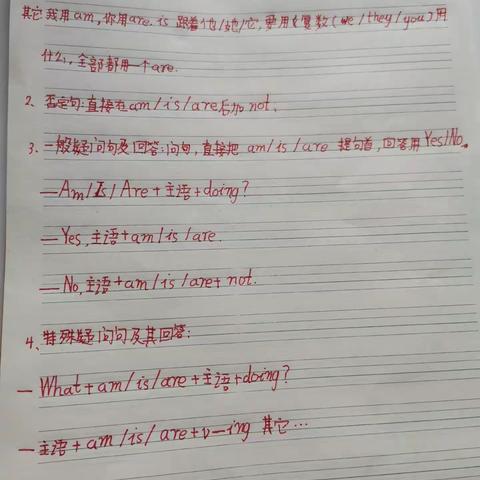 其它 我用am,你用are. is 跟着他/她/它,要用复数(we/they/you)用
什么,全部都用一个are.
2、否定句:直接在am/is/are后加not.
3、一般疑问句及回答:问句,直接把 am/is/are 提句首,回答用Yes/No。
—Am/Is/Are+主语+doing?
—Yes,主语+am/is/are.
—No,主语+am/is/are+ not.
4、特殊疑问句及其回答:
— What+am/is/are+主语+doing?
—主语+am/is/are+v—ing 其它…